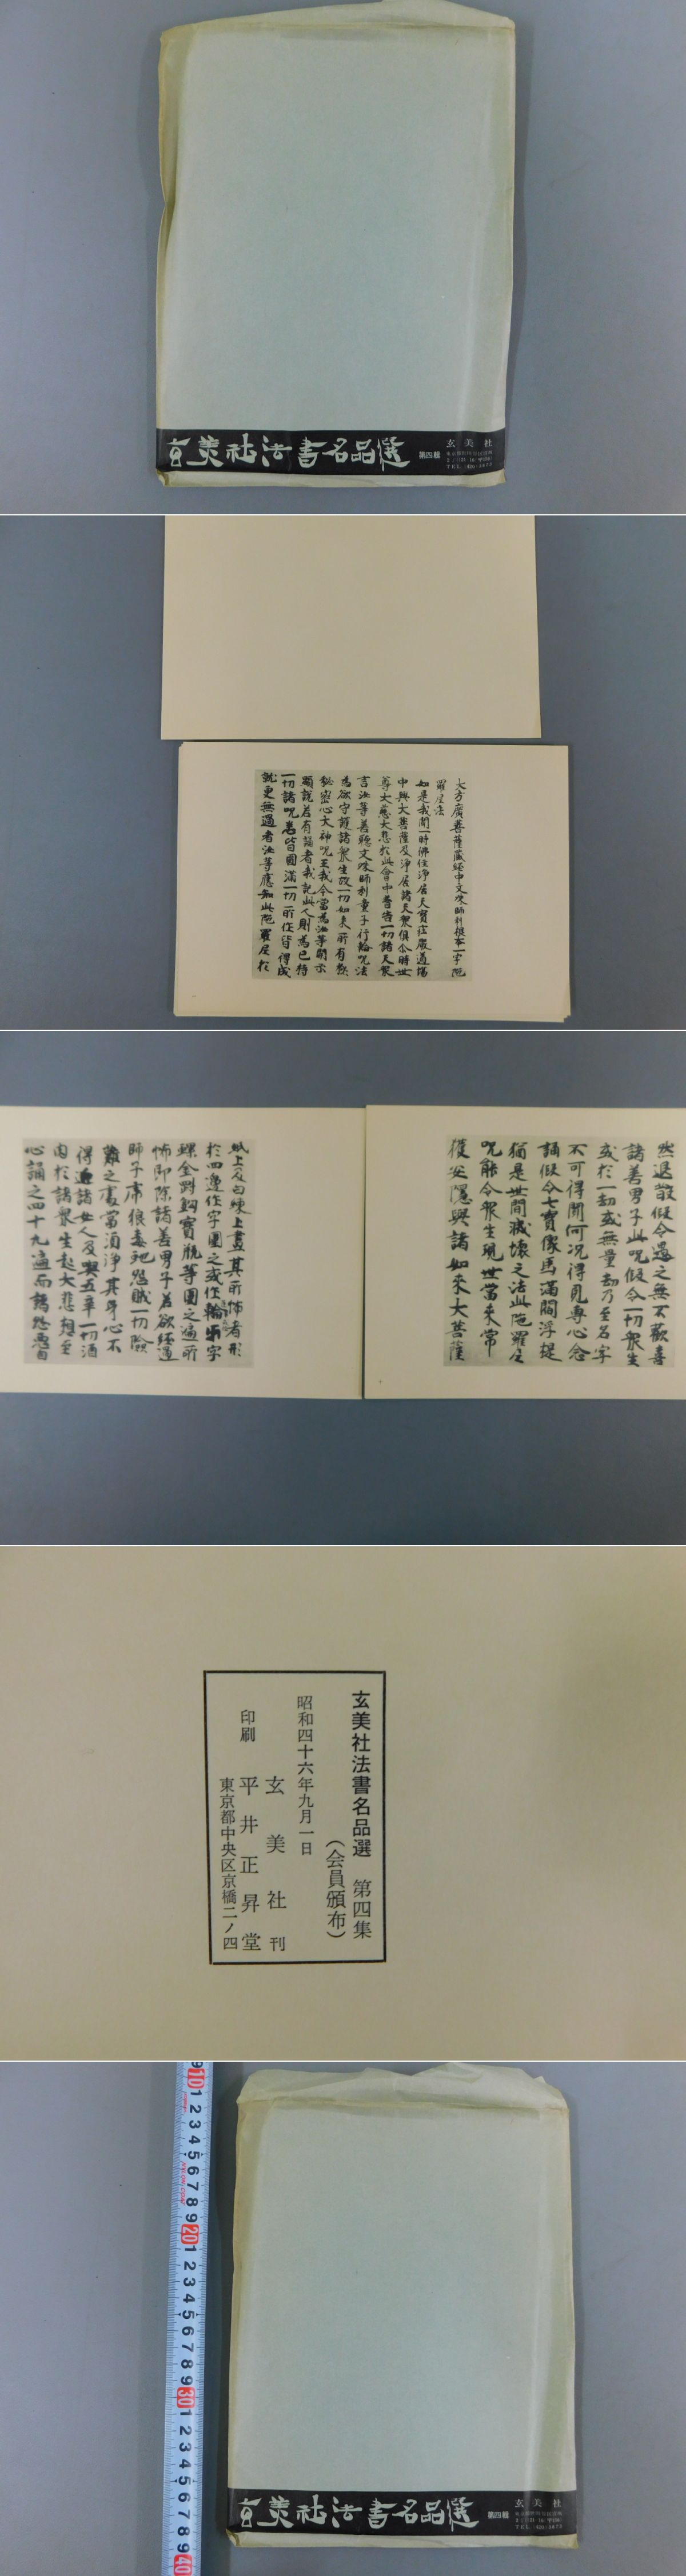 玄美社法書名品選
第四輯
玄美社
大方廣菩薩藏經中文殊師利根本一字陁
羅尼法
如是我聞一時佛住淨居天寶莊嚴道場
中與大菩薩及淨居諸天衆俱尒時世
尊大慈大悲於此會中普告一切諸天衆
言汝等善聽文殊師利童子行輪呪法
為欲守護諸衆生故一切如来所有
秘密心大神呪王我今當為汝等開示
顯說若有誦者我記此人則為已持
一切諸呪悉皆圓滿一切所作皆得成
就更無過者汝等應知此陁羅尼於
然退散假令遇之無不歡喜
諸善男子此呪假令一切衆生
或於一劫或無量劫乃至名字
不可得聞何況得見專心念
誦假令七寶像馬滿閻浮提
猶是世間滅壞之法此陁羅尼
呪能令衆生現世當来常
獲安隱與諸如来大菩薩
紙上及白練上畫其所怖者形
於四邊作字圍之或作輪
螺金
怖即除諸善男子若欲經過
師子席狼毒虵怨賊一切險
難之處當須淨其身心不
得近諸女人及與五辛一切酒
肉於諸衆生起大悲想至
心誦之四十九遍而諸怨惡自
玄美社法書名品選 第四集
(会員頒布)
昭和四十六年九月一日
玄美社 刊
印刷 平井正昇堂
東京都中央区京橋二ノ四
9 10 1 2 3 4 5 6 7 8 9 20 1 2 3 4 5 6 7 8 9 30 1 2 3 4 5 6 7 8 9 40
玄美社法書名品選
第四輯
玄美社